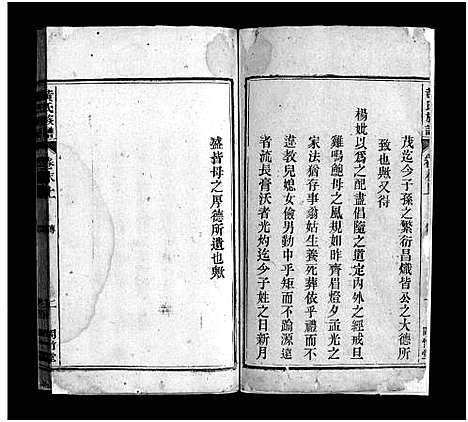 茂迄今子孫之繁衍昌熾皆公之大德所
致也歟又得
楊妣以爲之配盡倡隨之道定内外之經戒旦
雞鳴鮑母之風規如昨齊眉燈夕孟光之
家法猶存事翁姑生養死葬依乎禮而不
違教兒媳女儉男勤中乎矩而不踰源遠
者流長膏沃者光灼迄今子姓之日新月
盛皆母之厚德所遺也歟
黃氏族譜
卷末上
傳
二